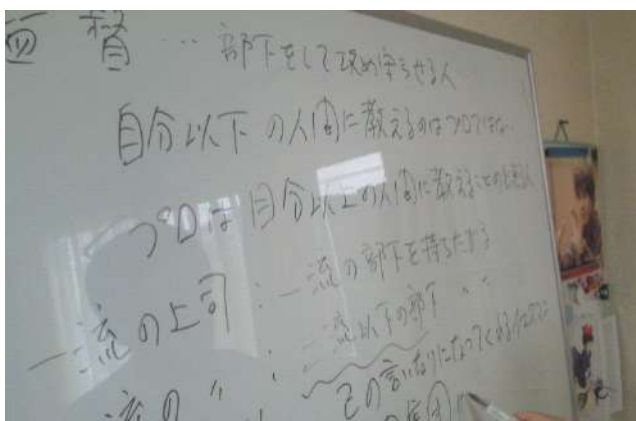 監督…部下をして攻め守らせる人
自分以下の人間に教えるのはプロではない
プロは自分以上の人間に教えることの出来る人
一流の上司:一流の部下を持ちたがる
流の〃:二流以下の部下〃
の言いなりになってくれる